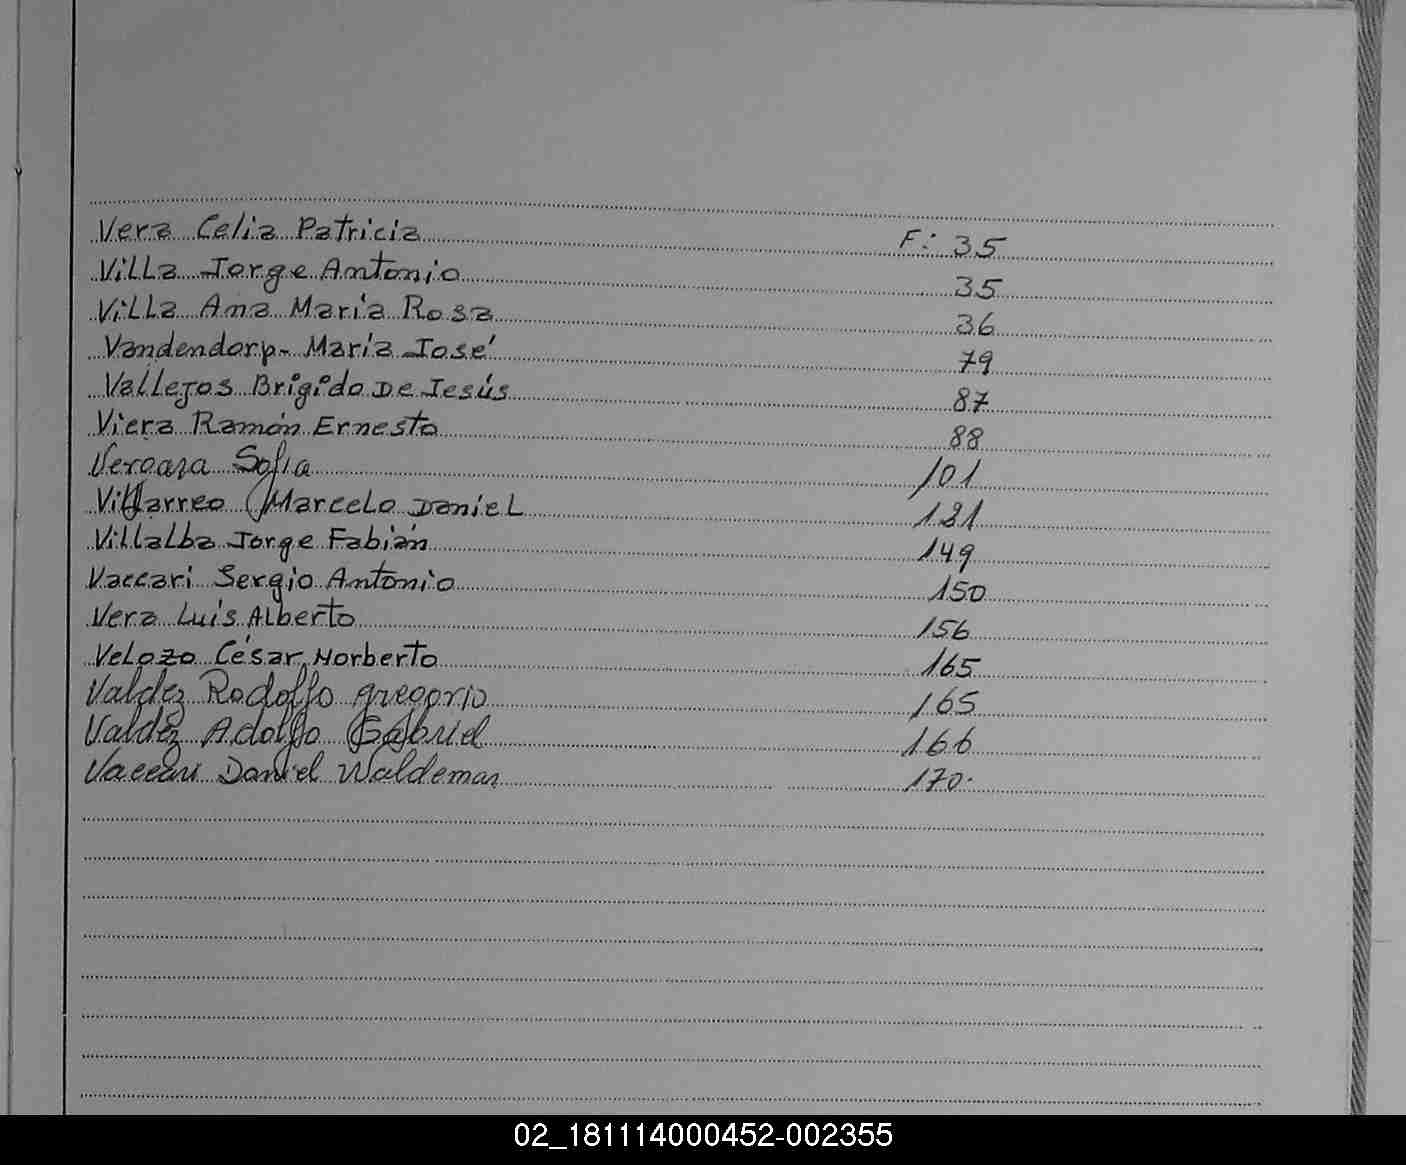 Vera Celia Patricia F: 35
Villa Jorge Antonio 35
Villa Ana María Rosa 36
Vandendorp- María José 79
Vallejos Brigido De Jesús 87
Viera Ramón Ernesto 88
Vergara Sofia 101
Villarreo Marcelo Daniel 131
Villalba Jorge Fabián 149
Vaccari Sergio Antonio 150
Vera Luis Alberto 156
Velozo César Norberto 165
Valdez Rodolfo Gregorio 165
Valdez Adolfo Gabriel 166
Vaccari Daniel Waldemar 170.
02_181114000452-002355